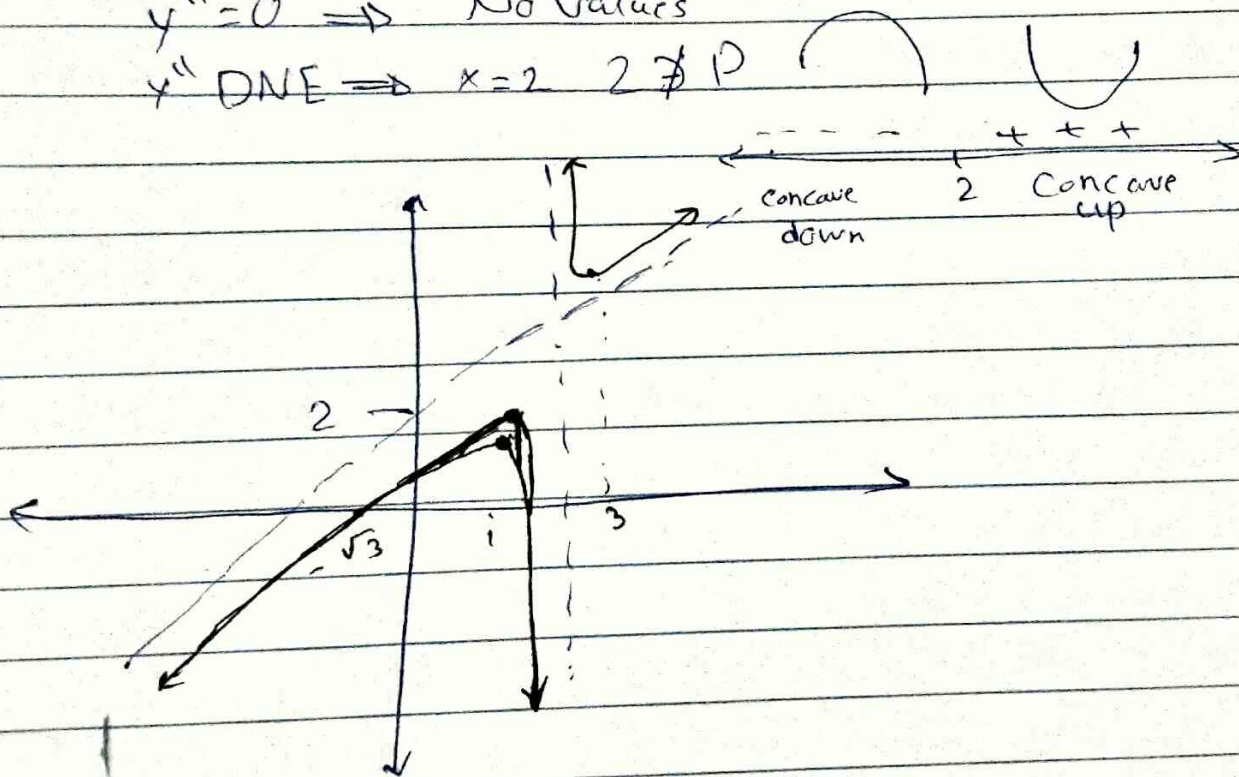 y"=0 ⇒ No values
y" DNE ⇒ x=2 2 ∌ D
- - - - + + +
2
concave down
Concave up
2
√3
1
3